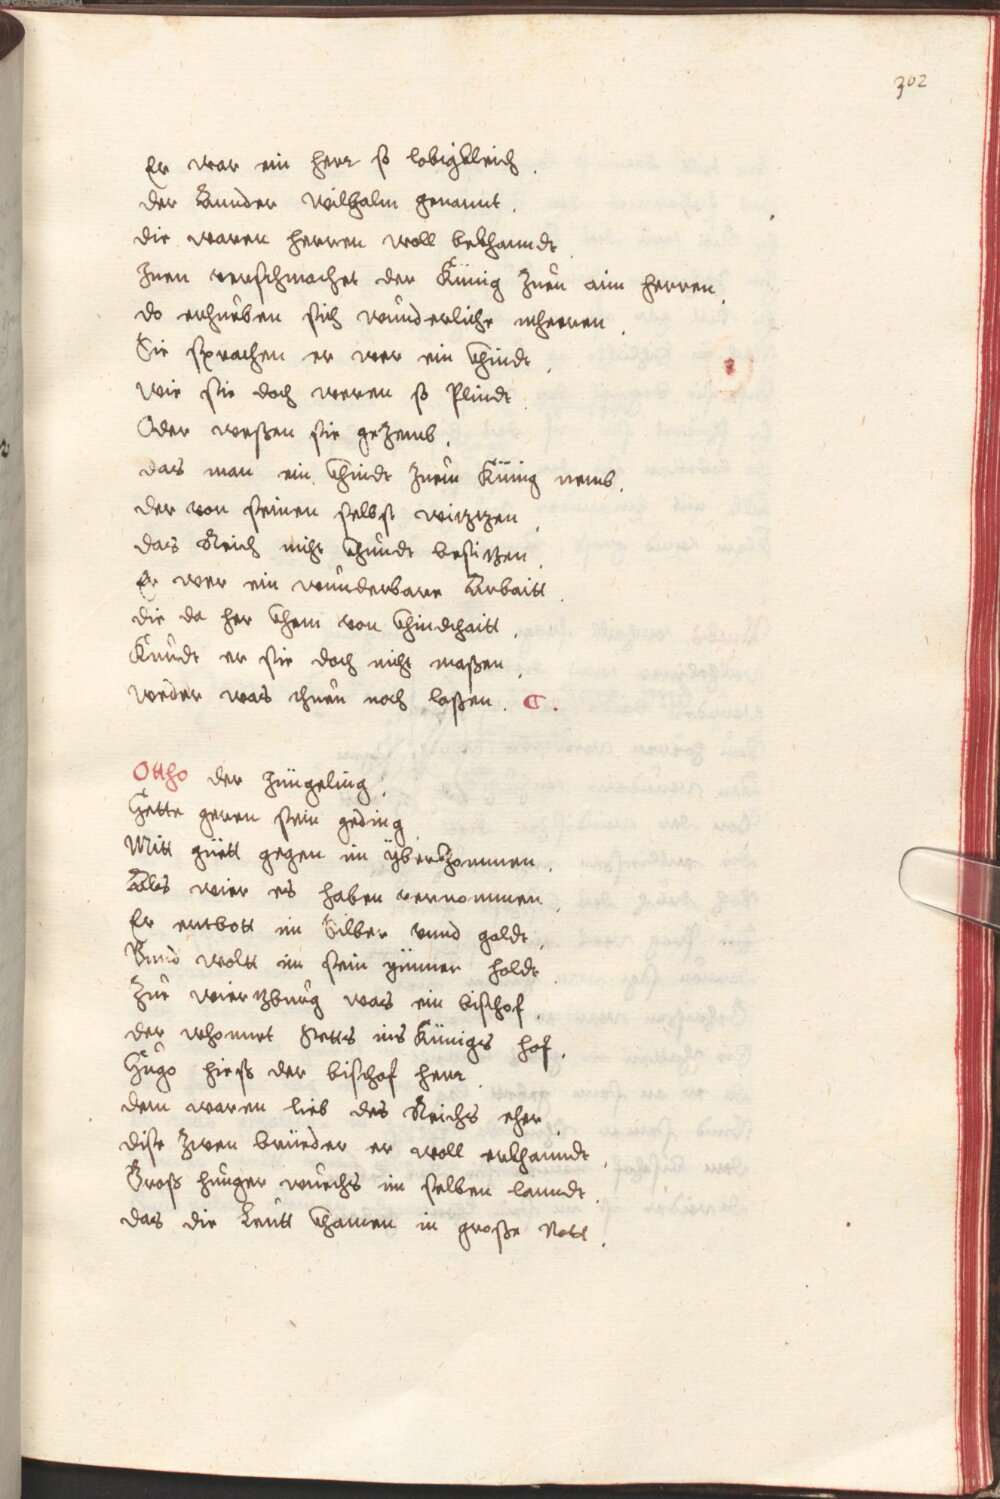 302
Er war ein herr so lobigkleich.
der Annder Wilhalm genannt.
die waren herren woll bekhanndt
Inen verschmachet der Künig Zuen aim herren.
do erhueben sich wunderliche mheeren.
Sie sprachen er wer ein Khindt.
Wie sie doch weren so Plindt
Oder weßen sie gezemb.
das man ein Khindt Zuem Künig nemb.
der von seinen selbst witzzen.
das Reich nicht Khundt besitzen.
Er wer ein wunderbare Arbaitt.
die da her Khem von Khindthaitt.
Kundt er sie doch nicht maßen.
weder was thuen noch laßen. C.
Ottho der Jüngeling.
Hette geren sein geding
Mitt güett gegen im überkhommen.
Als wier es haben vernommen.
Er entbott im Silber vnnd goldt.
Vnnd woltt im sein ymmer holdt.
Zue wiertzburg was ein bischof.
der whonnet stetts ins Künigs hof.
Hugo hiess der bischof herr.
dem waren lieb des Reichs eher.
dise Zwen brüeder er woll erkhanndt.
Gross hunger wuechs im selben lanndt.
das die Leütt Khamen in große Nott.